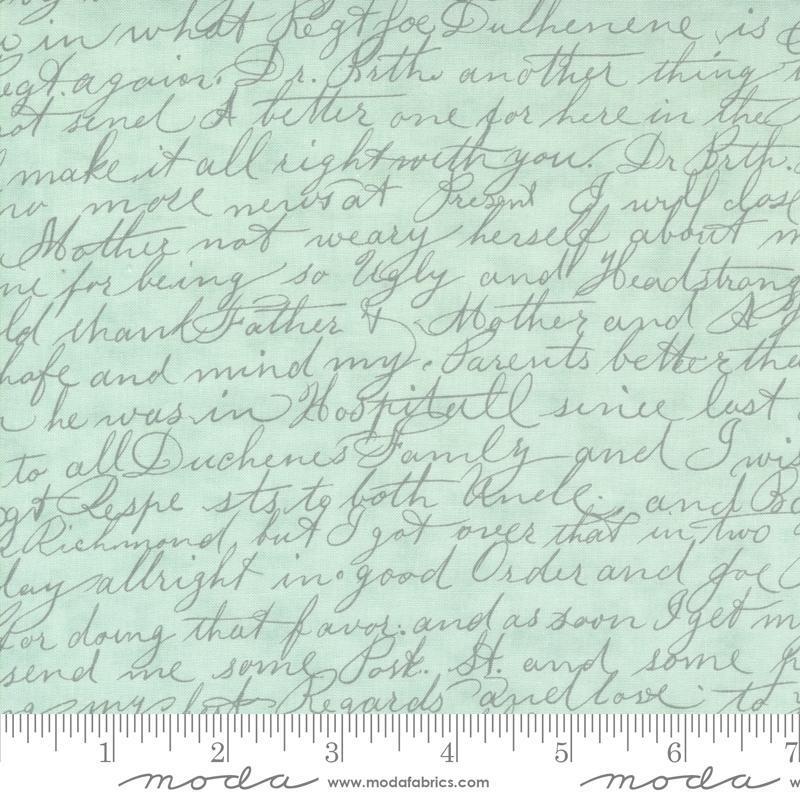 in what Regt Joe Duchenene is
Regt. again. Dr. Brth. another thing
not send A better one for here in the
make it all right with you. Dr Brth.
no more news at Present I will close
Mother not weary herself about m
for being so Ugly and Headstrong
ld thank Father & Mother and
hafe and mind my. Parents better the
he was in Hospitall since last
to all Duchenes Family and I wis
gt Respe sts to both Uncle. and
Richmond, but I got over that in two
day allright in good Order and Joe
for doing that favor. and as soon I get m
send me some Post. St. and some p
my Regards and love to
1 2 3 4 5 6 7
moda www.modafabrics.com moda w